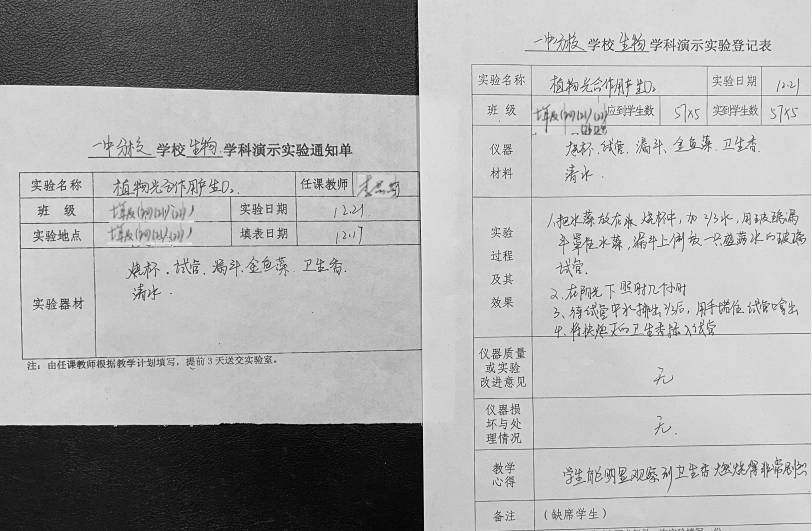 一中分校 学校 生物 学科演示实验通知单
实验名称 植物光合作用产生O₂ 任课教师
班 级 实验日期 12.21
实验地点 填表日期 12.17
实验器材 烧杯、试管、漏斗、金鱼藻、卫生香、
清水.
注：由任课教师根据教学计划填写，提前3天送交实验室。
一中分校 学校 生物 学科演示实验登记表
实验名称 植物光合作用产生O₂ 实验日期 12.21
班 级 应到学生数 57×5 实到学生数 57×5
仪器 材料 烧杯、试管、漏斗、金鱼藻、卫生香、
清水.
实验 过程 及其 效果
1、把水藻放在 烧杯中，加2/3水，用玻璃漏
斗罩住水藻，漏斗上倒放一只盛满水的玻璃
试管.
2、在阳光下照射几小时
3、待试管中水排出2/3后，用手堵住试管口拿出
4、将快熄灭的卫生香插入试管
仪器质量 或实验 改进意见 无
仪器损 坏与处 理情况 无.
教学 心得 学生能明显观察到卫生香燃烧得非常剧烈
备注 （缺席学生）